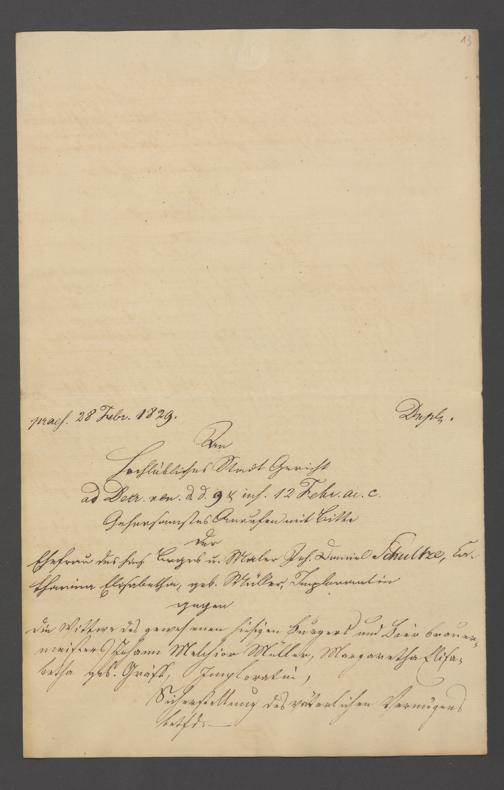 13
praes. 28 Febr. 1829.
Dupl.
An
Hochlöbliches Stadt Gericht
ad Decr. ren. d. d. 9 & ins. 12 Febr. a. c.
Gehorsamstes Anrufen mit Bitte
der
Ehefrau des Burgers u. Maler Joh. Daniel Schultze, Ca-
tharina Elisabetha, geb. Müller, Implorantin
gegen
die Wittwe des gewesenen hiesigen Burgers und Bierbrauer-
meisters Johann Melchior Müller, Margaretha Elisa-
betha geb. Gräff, Imploratin,
Sicherstellung des väterlichen Vermögens
betfd.